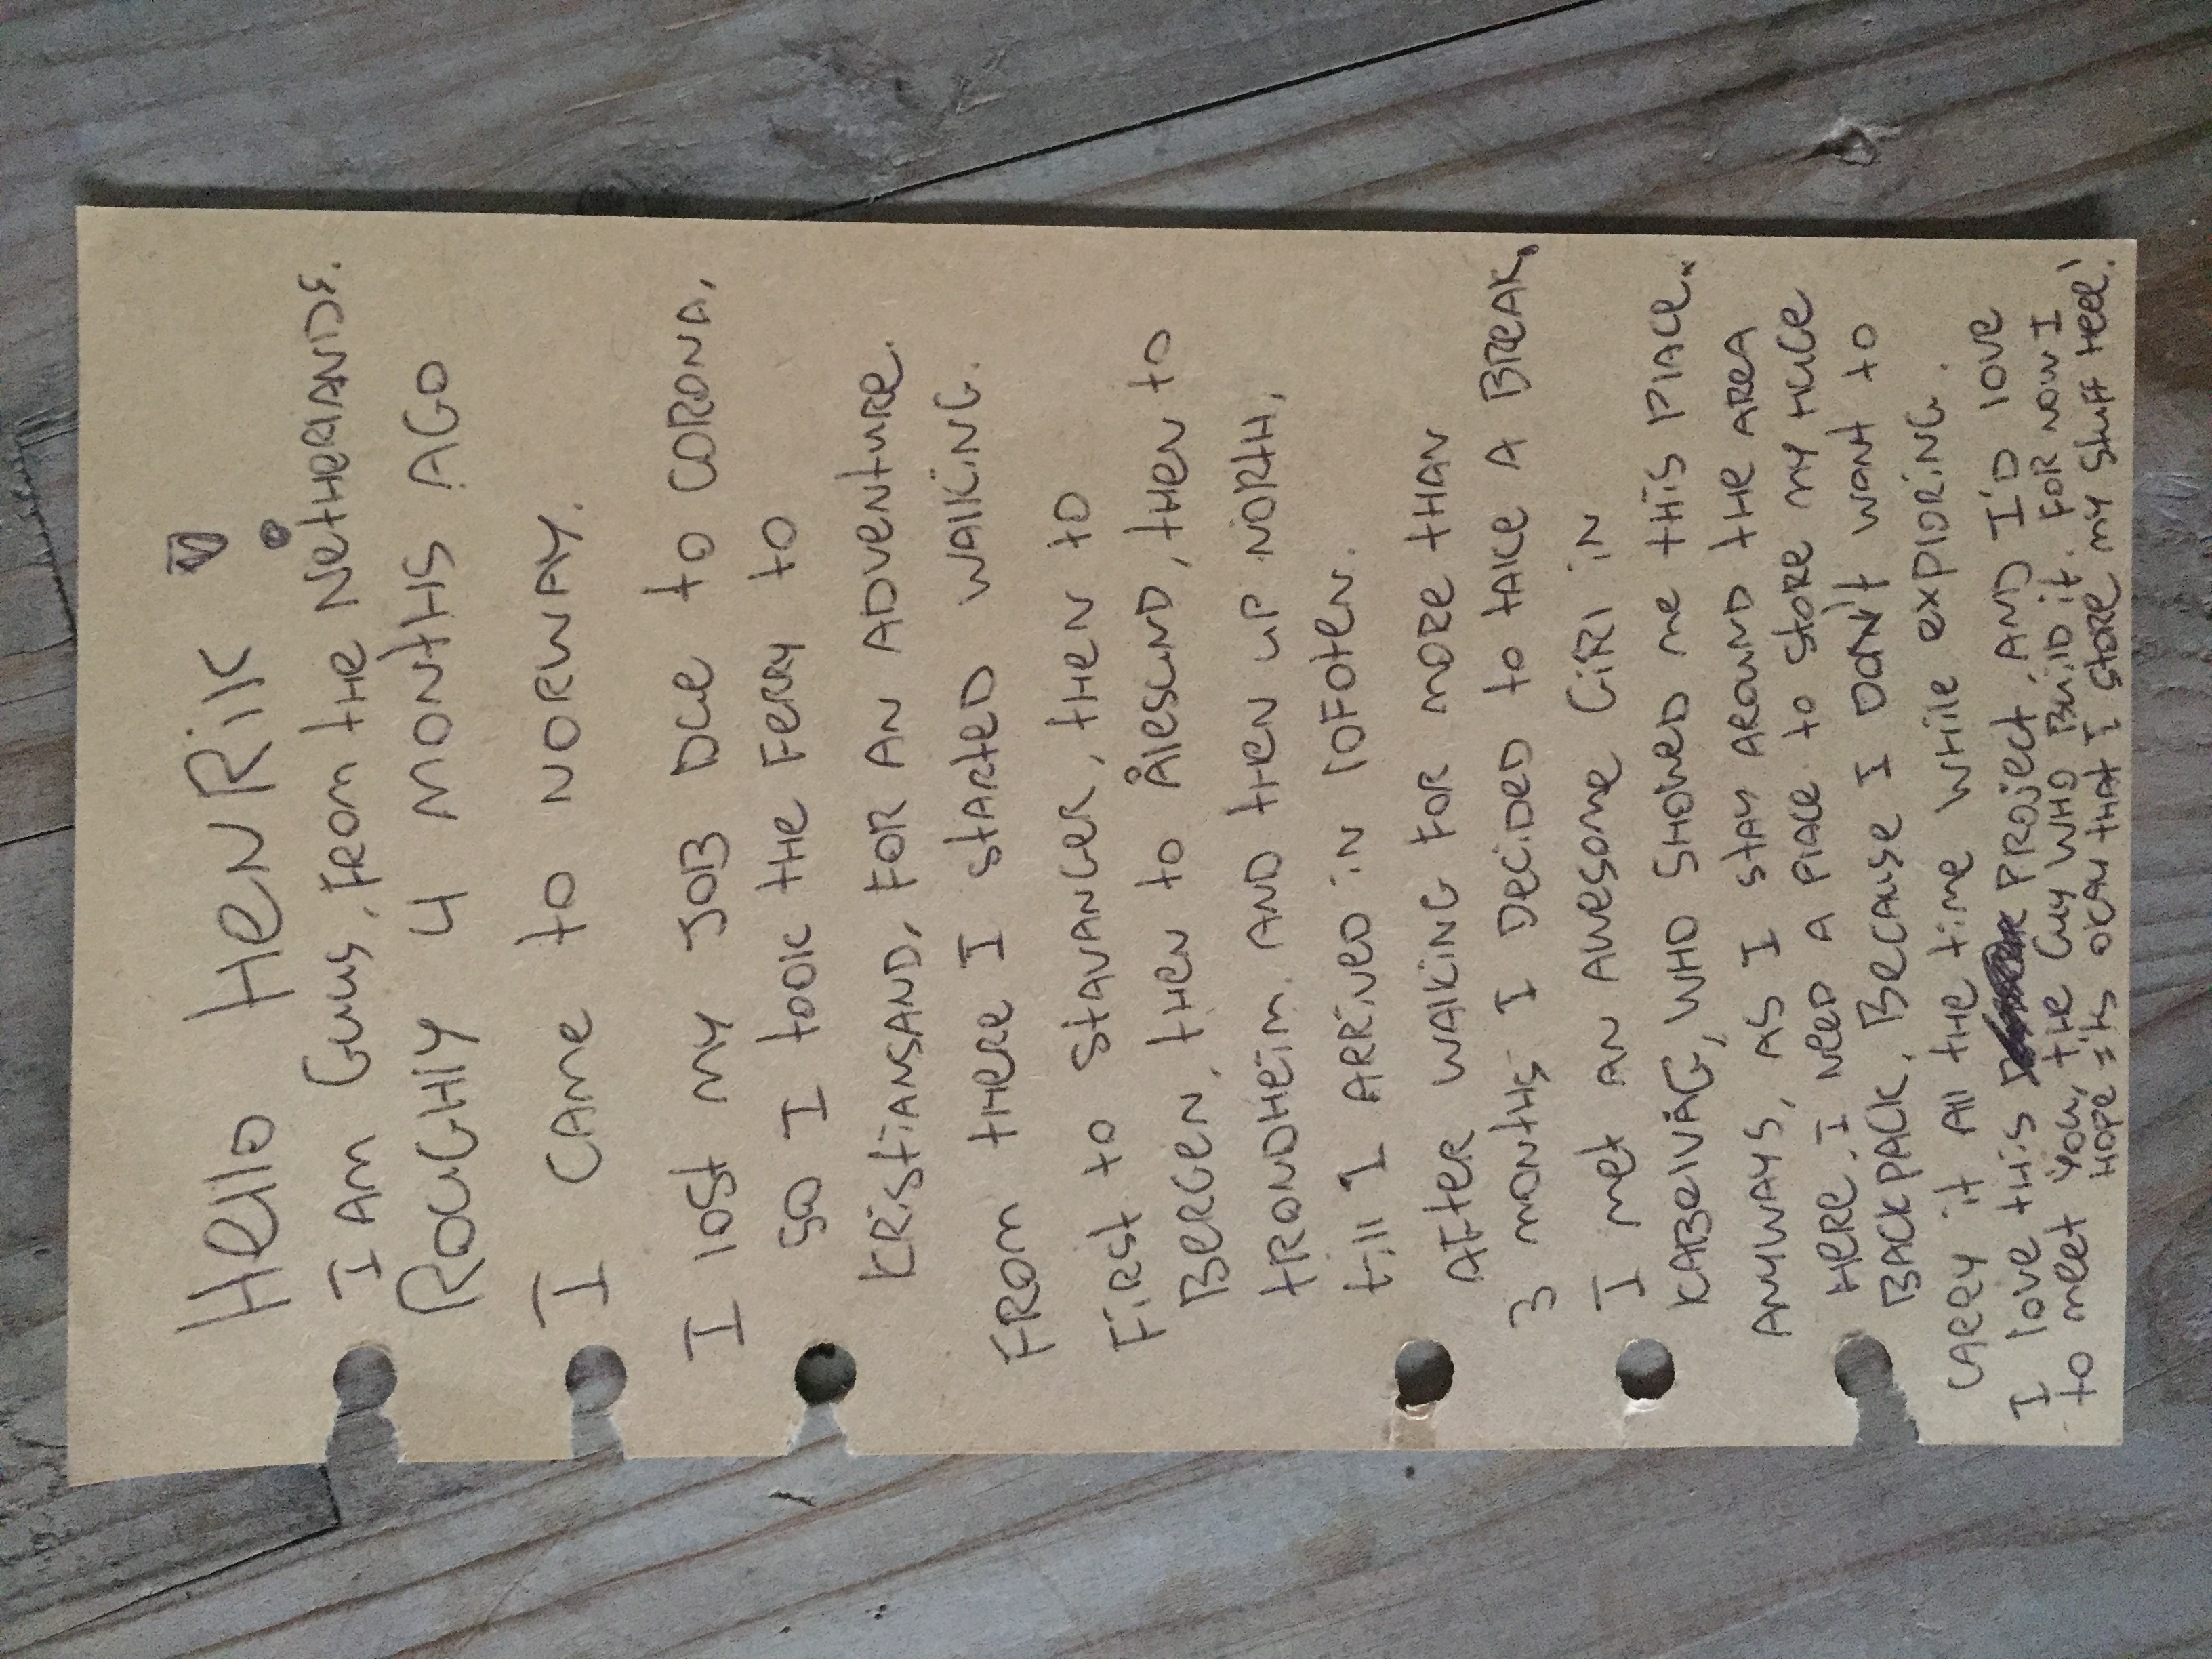 Hello Henrik!
I am Guus, from the Netherlands.
Roughly 4 months ago
I came to Norway.
I lost my job due to corona,
so I took the ferry to
Kristiansand, for an adventure.
From there I started walking.
First to Stavanger, then to
Bergen, then to Ålesund, then to
Trondheim. And then up north,
till I arrived in Lofoten.
After walking for more than
3 months I decided to take a break.
I met an awesome girl in
Kabelvåg, who showed me this place.
Anyways, as I stay around the area
here. I need a place to store my huge
backpack. Because I don't want to
carry it all the time while exploring.
I love this project, and I'd love
to meet you, the guy who build it. For now I
hope it's okay that I store my stuff here!